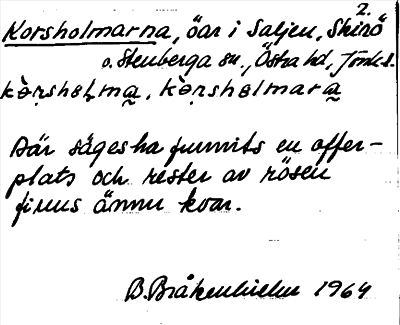 2.
Korsholmarna, öar i Saljen, Skirö
o. Stenberga sn., Östra hd, Jönk. l.
kò̤rshəl̥ma̰, kò̤rshəlmara̰
Där säges ha funnits en offer-
plats och rester av rösen
finns ännu kvar.
B. Bråkenhielm 1964